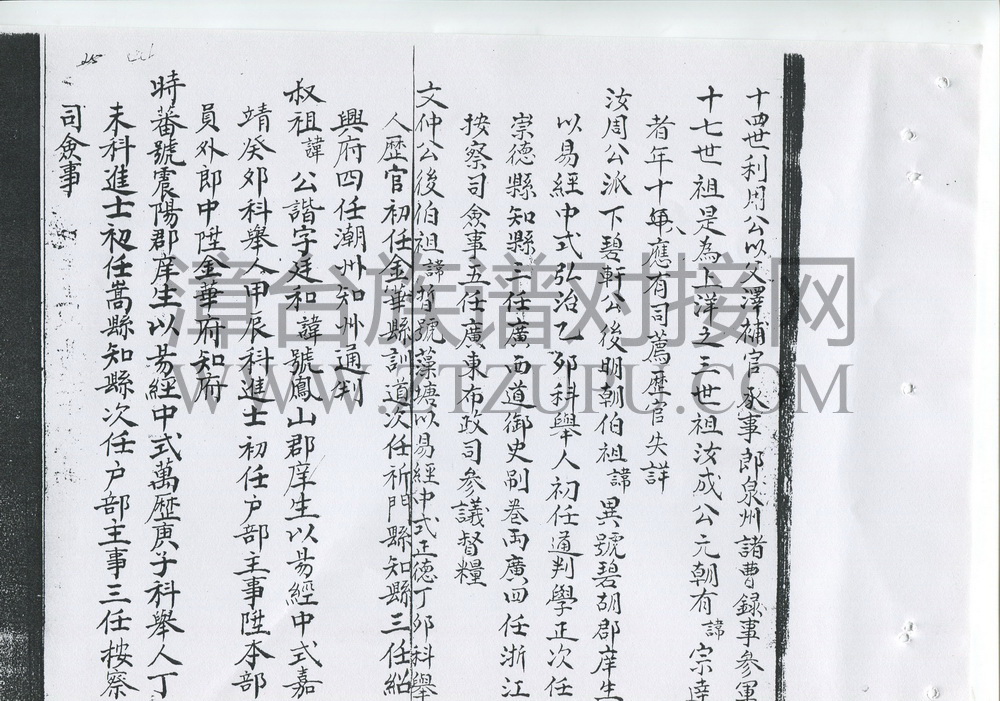 十四世利用公以父澤補官承事郎泉州諸曹録事參軍
十七世祖是為上洋之三世祖汝成公元朝有諱宗達
者年十年應有司薦歷官失詳
汝周公派下碧軒公後明朝伯祖諱異號碧胡郡庠生
以易經中式弘治乙卯科舉人初任通判學正次任
崇德縣知縣三任廣西道御史刷卷兩廣四任浙江
按察司僉事五任廣東布政司參議督糧
文仲公後伯祖諱晳號藻塘以易經中式正德丁卯科舉
人歷官初任金華縣訓道次任祈門縣知縣三任紹
興府四任潮州知州通判
叔祖諱公諧字廷和諱號鳳山郡庠生以易經中式嘉
靖癸卯科舉人甲辰科進士初任户部主事陞本部
員外郎中陞金華府知府
時蕃號震陽郡庠生以易經中式萬歷庚子科舉人丁
未科進士初任嵩縣知縣次任户部主事三任按察
司僉事
漳台族谱对接网
WWW.ZTZUPU.COM